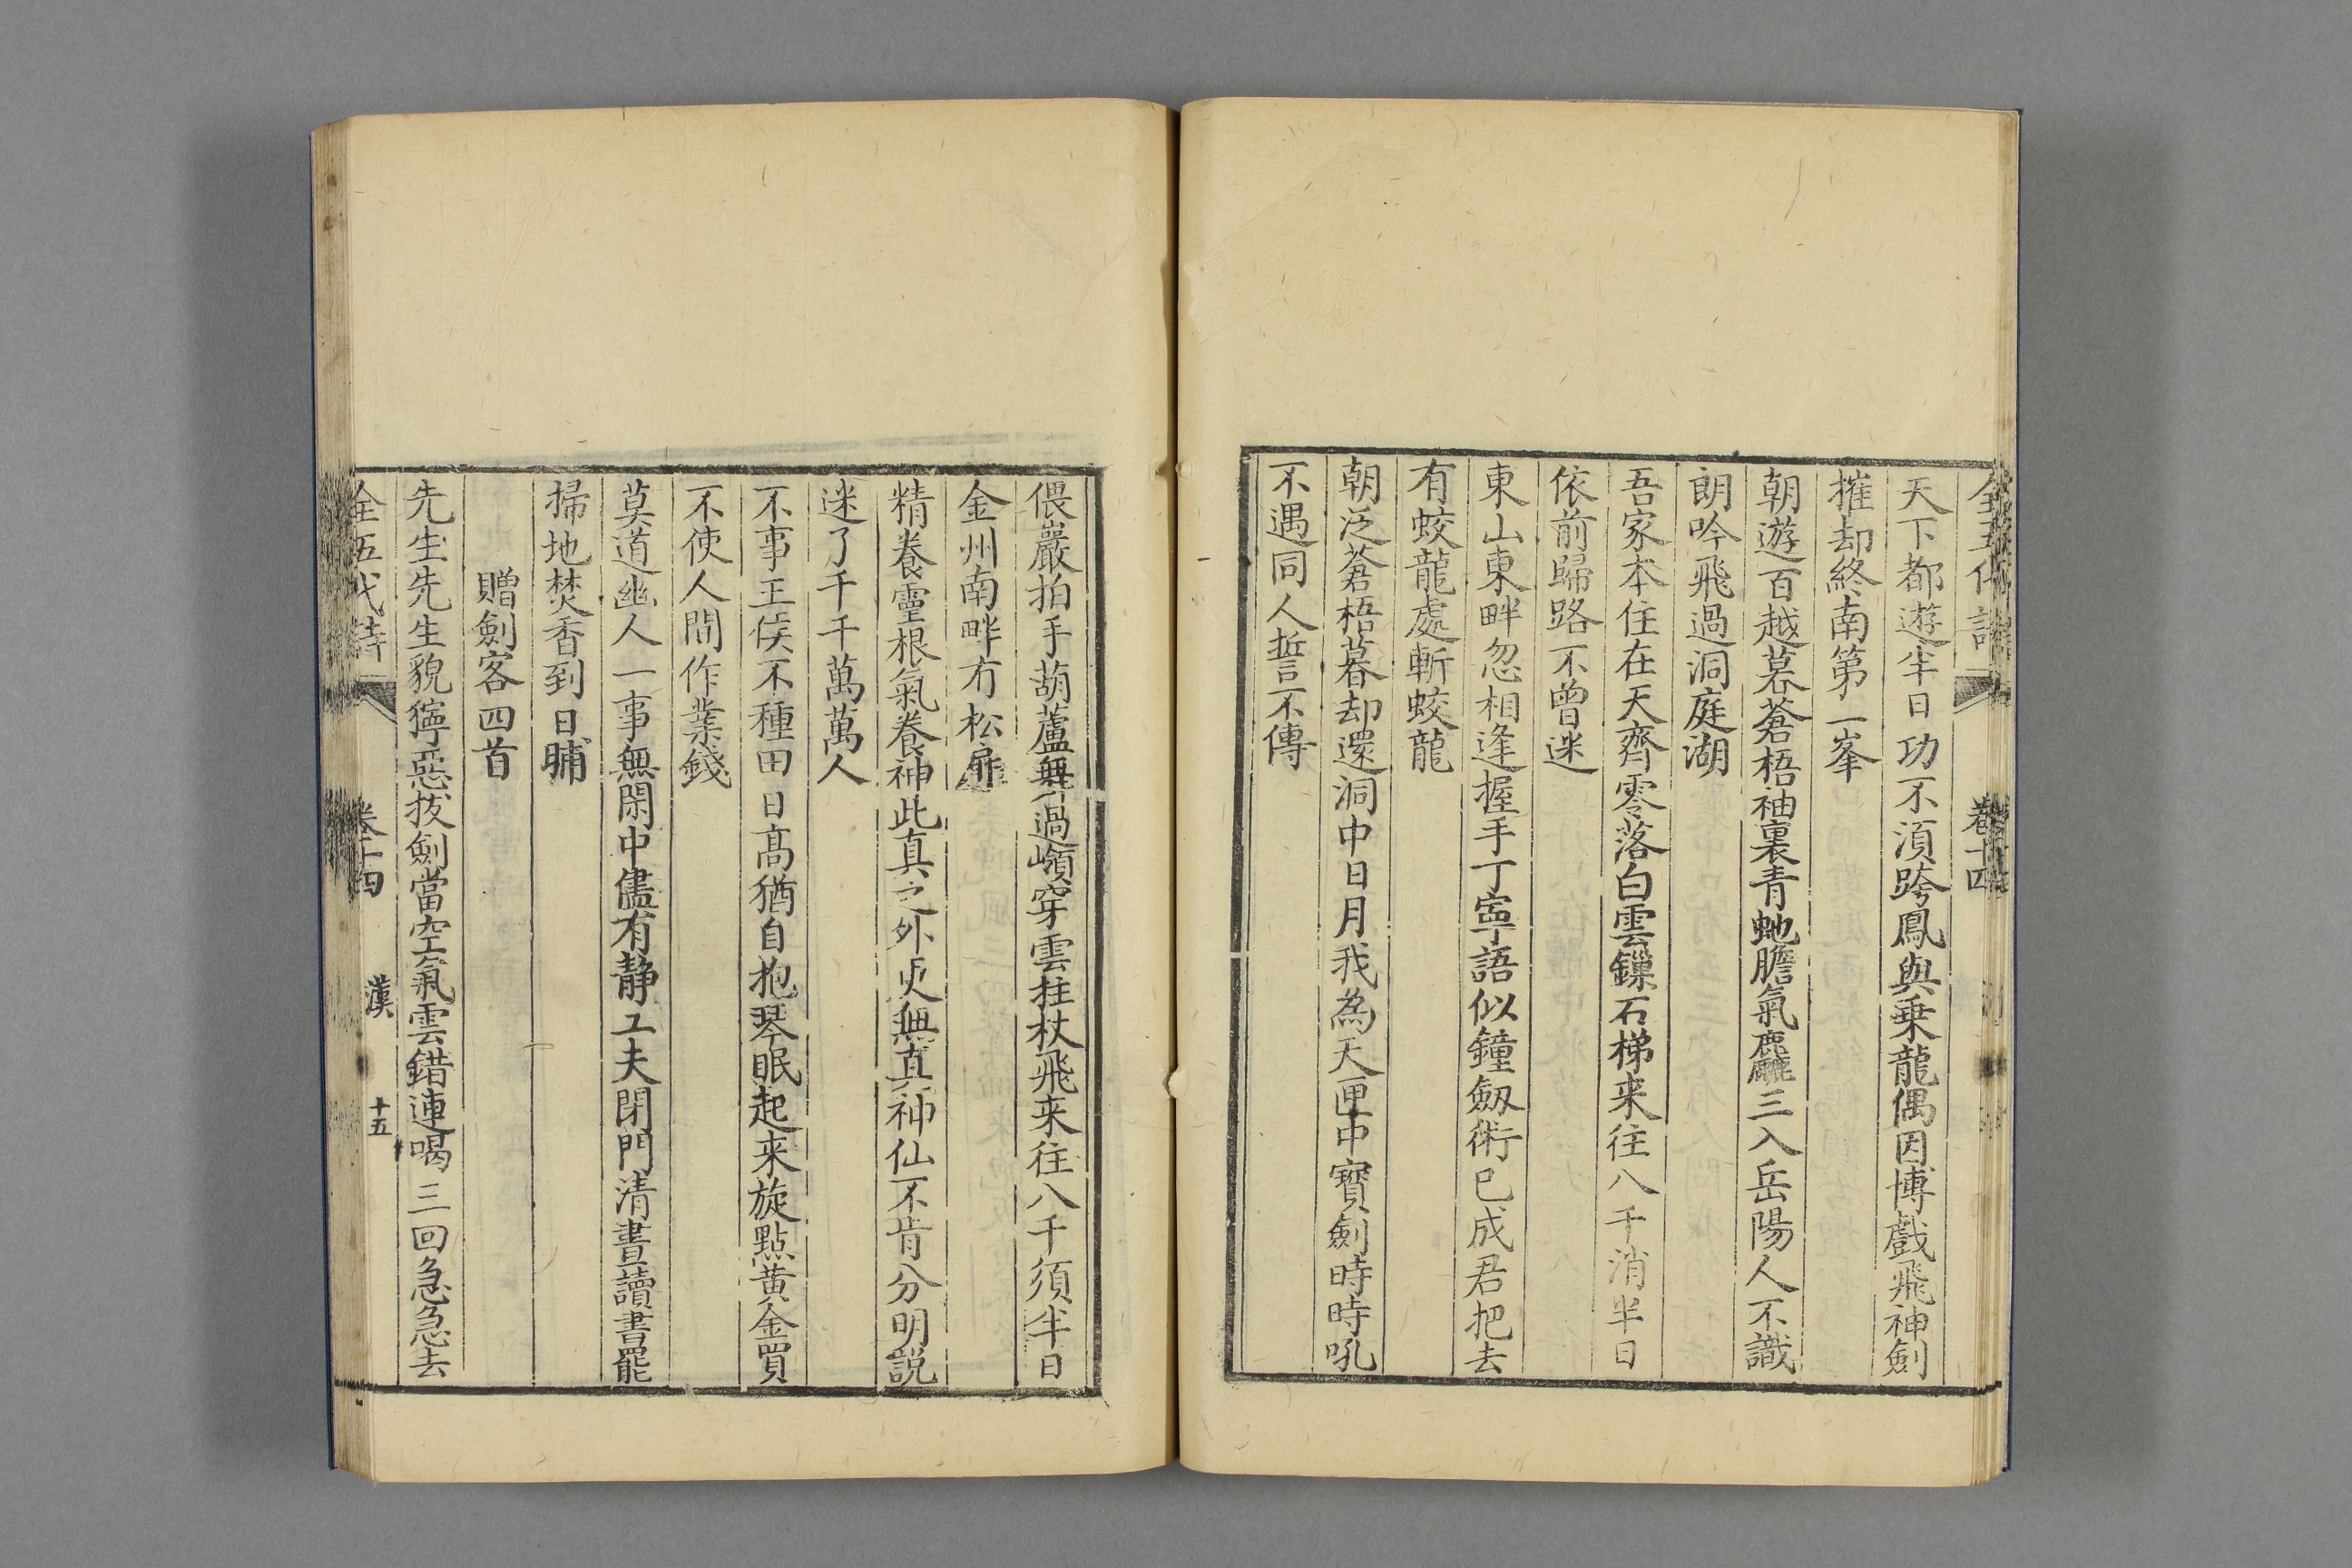 全五代詩 卷十四
天下都遊半日功不須跨鳳與乗龍偶因博戲飛神劍
摧却終南第一峯
朝遊百越暮蒼梧袖裏青虵膽氣麤三入岳陽人不識
朗吟飛過洞庭湖
吾家本住在天齊零落白雲鏁石梯来往八千消半日
依前歸路不曾迷
東山東畔忽相逢握手丁寧語似鐘劔術已成君把去
有蛟龍處斬蛟龍
朝泛蒼梧暮却還洞中日月我為天匣中寳劍時時吼
不遇同人誓不傳
偎巖拍手葫蘆舞過嶺穿雲拄杖飛来往八千須半日
金州南畔有松扉
精養靈根氣養神此真之外更無真神仙不肯分明説
迷了千千萬萬人
不事王侯不種田日高猶自抱琴眠起来旋點黃金買
不使人間作業錢
莫道幽人一事無閑中儘有静工夫閉門清晝讀書罷
掃地焚香到日晡
贈劍客四首
先生先生貌獰惡拔劍當空氣雲錯連喝三回急急去
全五代詩 卷十四 漢 十五